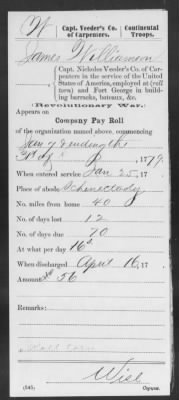 W
Capt. Veeder's Co. of Carpenters.
Continental Troops.
James Williamson
Capt. Nicholas Veeder's Co. of Car-
penters in the service of the United
States of America, employed at (roll
torn) and Fort George in build-
ing barracks, bateaux, &c.
(Revolutionary War.)
Appears on
Company Pay Roll
of the organization named above, commencing
Jan'y & ending the
31st of 1779.
When entered service Jan 25, 17
Place of abode Schenectady
No. miles from home 40
No. of days lost 12
No. of days due 70
At what per day 16s
When discharged April 16, 17
Amount 56
Remarks:
Roll torn
Wise
(545) Copyist.